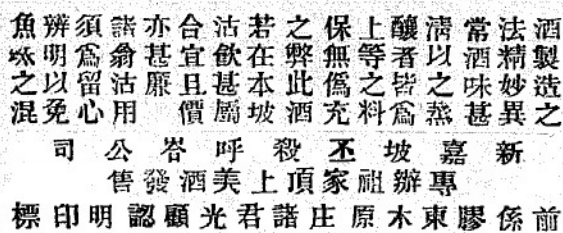 酒製造之
法精妙異
常酒味甚
淸以之蒸
釀者皆爲
上等之料
保無僞充
之弊此酒
若在本坡
沽飮甚屬
合宜且價
亦甚廉
諸翁沽用
須爲留心
辨明以免
魚珠之混
新嘉坡丕殺呼峇公司
專辦祖家頂上美酒發售
前係膠東木原庄諸君光顧認明印標